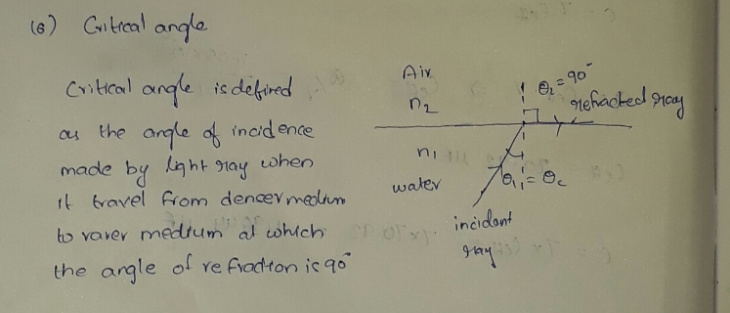 (6) Critical angle
Critical angle is defined
as the angle of incidence
made by light ray when
it travel from dencer medium
to rarer medium at which
the angle of refraction is 90°
Air
n2
θ2 = 90°
refracted ray
n1
water
θ1 = θc
incident
ray